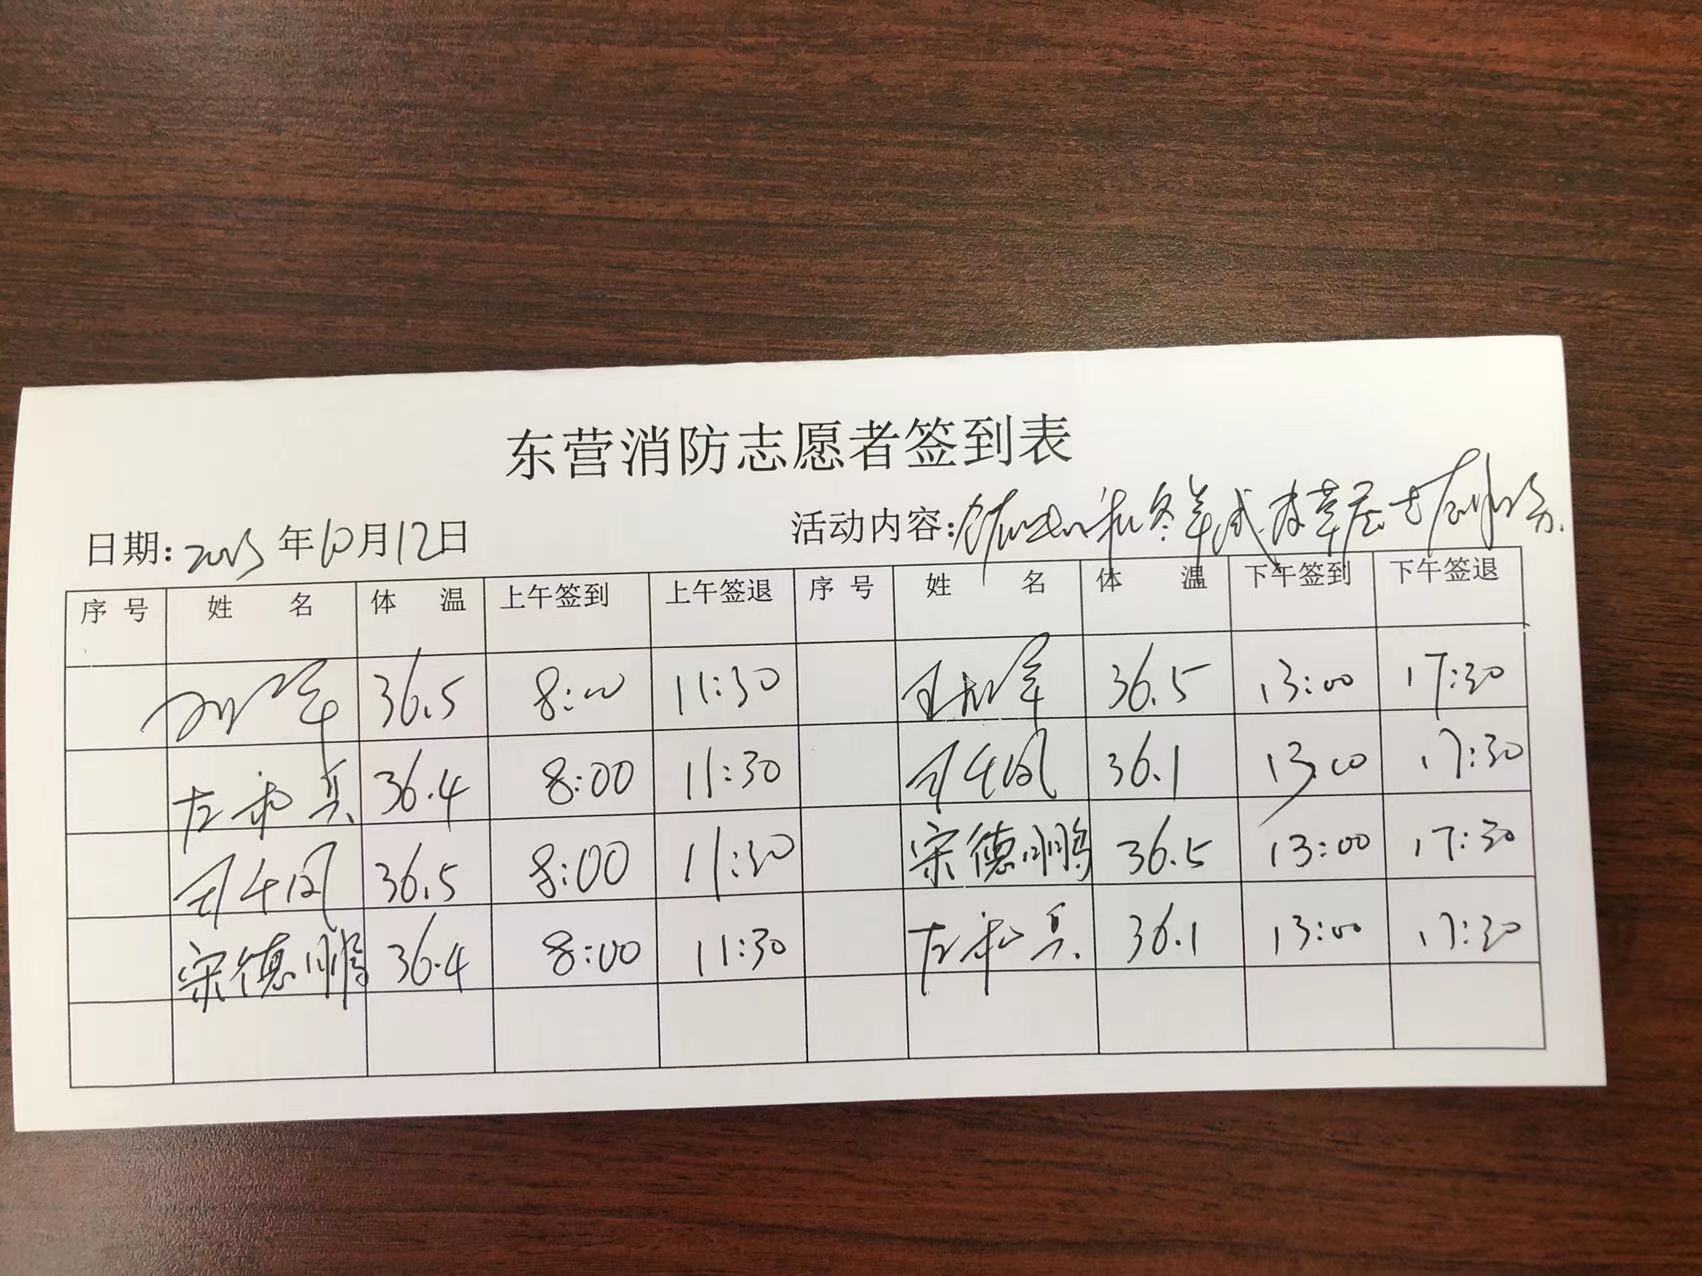 东营消防志愿者签到表
日期: 年10月12日 活动内容:
序号 姓名 体温 上午签到 上午签退 序号 姓名 体温 下午签到 下午签退
36.5 8:00 11:30 36.5 13:00 17:30
左和兵 36.4 8:00 11:30 36.1 13:00 17:30
36.5 8:00 11:30 宋德鹏 36.5 13:00 17:30
宋德鹏 36.4 8:00 11:30 左和兵 36.1 13:00 17:30